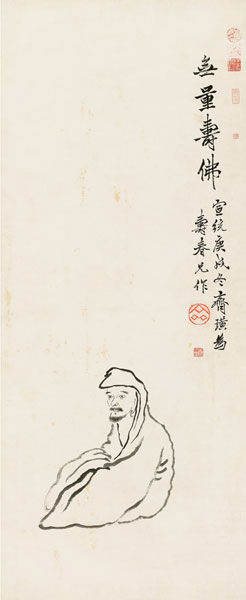 無量壽佛
宣統庚戌冬齊璜為
壽春兄作